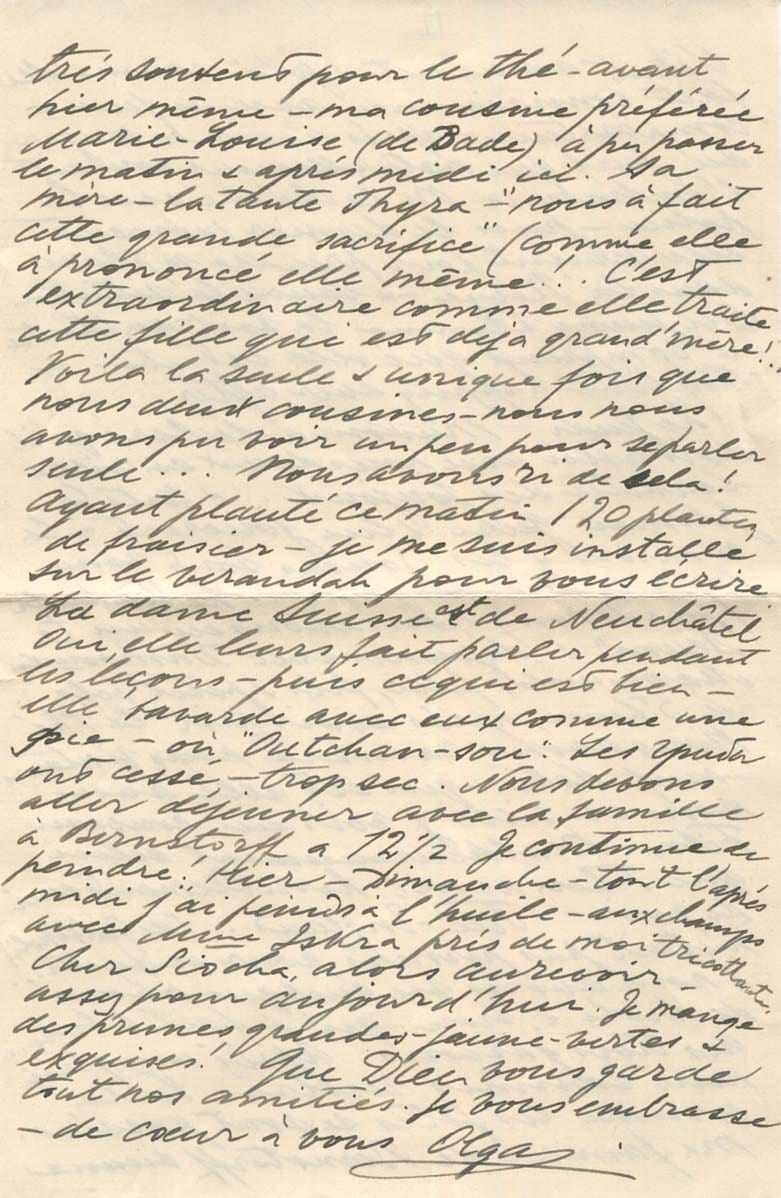 très souvent pour le thé - avant
hier même - ma cousine préférée
Marie-Louise (de Bade) à pu passer
le matin & après midi ici. Sa
mère - la tante Thyra - "nous à fait
cette grande sacrifice" (comme elle
à prononcé elle même!.. C'est
extraordinaire comme elle traite
cette fille qui est deja grand'mère!..
Voila la seule & unique fois que
nous deux cousines - nous nous
avons pu voir un peu pour se parler
seule... Nous avons ri de sela!
Ayant planté ce matin 120 plantes
de fraisier - je me suis installé
sur le verandah pour vous écrire.
La dame Suisse est de Neuchâtel
Oui, elle leurs fait parler pendant
les leçons - puis ce qui est bien -
elle bavarde avec eux comme une
pie - où "Outchan-sou". Les
ont cessé, - trop sec. Nous devons
aller déjeuner avec la famille
à Bernstorff a 12 1/2 Je continue de
peindre! Hier - Dimanche - tout l'après
midi j'ai peinds à l'huile - aux champs
avec Mme Iskra près de moi tricottante.
Cher Siocha, alors aurevoir -
assez pour aujourd'hui. Je mange
des prunes grandes - jaune-vertes &
exquises! Que Dieu vous garde
tout nos amitiés. Je vous embrasse
- de cœur à vous Olga